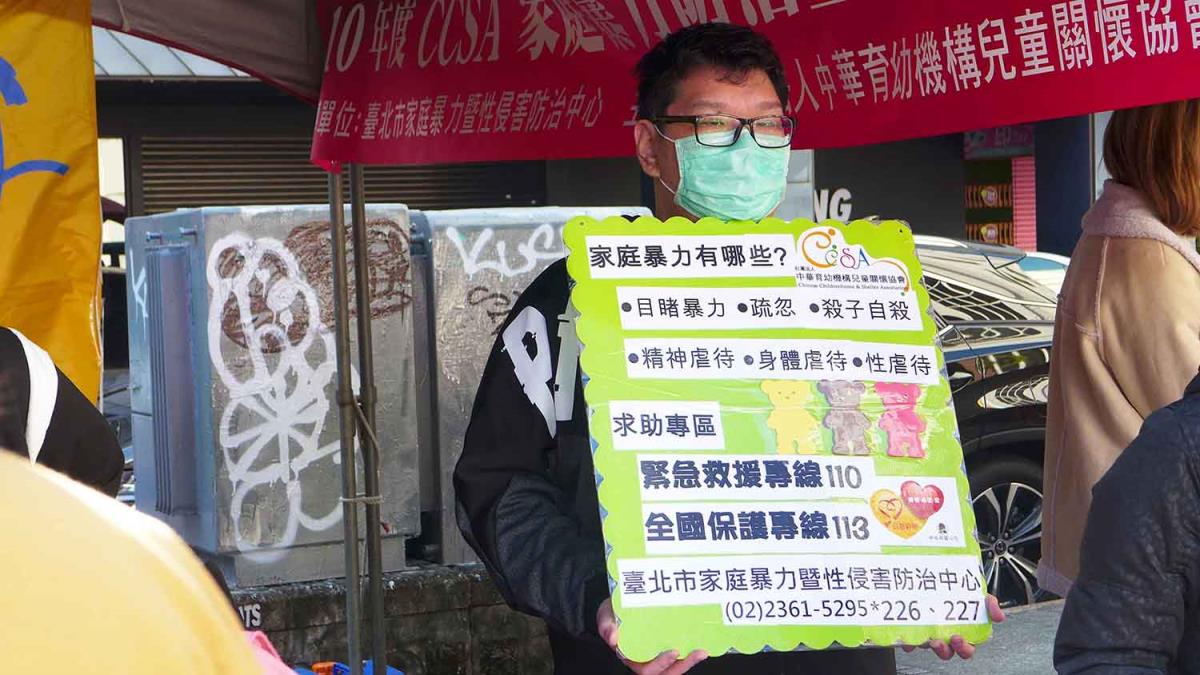 10 年度 CCSA 家庭暴力防治
單位:臺北市家庭暴力暨性侵害防治中心
人中華育幼機構兒童關懷協會
KUS
NG
家庭暴力有哪些?
CCSA
社團法人
中華育幼機構兒童關懷協會
Chinese Childrenhome & Shelter Association
•目睹暴力 •疏忽 •殺子自殺
•精神虐待 •身體虐待 •性虐待
求助專區
緊急救援專線110
全國保護專線113
臺北市家庭暴力暨性侵害防治中心
(02)2361-5295*226、227